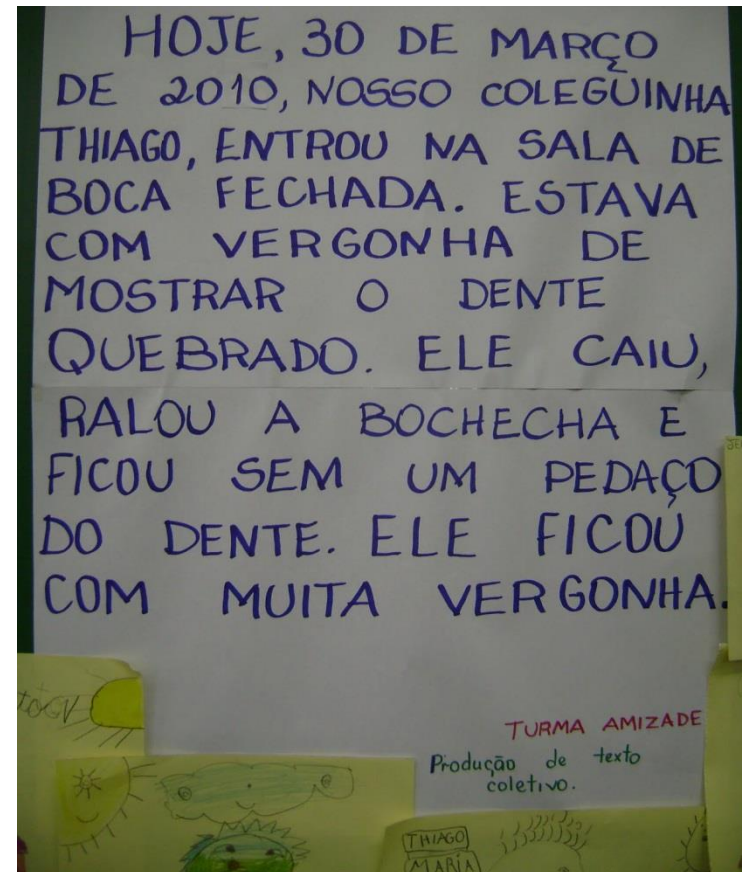 HOJE, 30 DE MARÇO
DE 2010, NOSSO COLEGUINHA
THIAGO, ENTROU NA SALA DE
BOCA FECHADA. ESTAVA
COM VERGONHA DE
MOSTRAR O DENTE
QUEBRADO. ELE CAIU,
RALOU A BOCHECHA E
FICOU SEM UM PEDAÇO
DO DENTE. ELE FICOU
COM MUITA VERGONHA.
TURMA AMIZADE
Produção de texto
coletivo.
THIAGO
MARIA